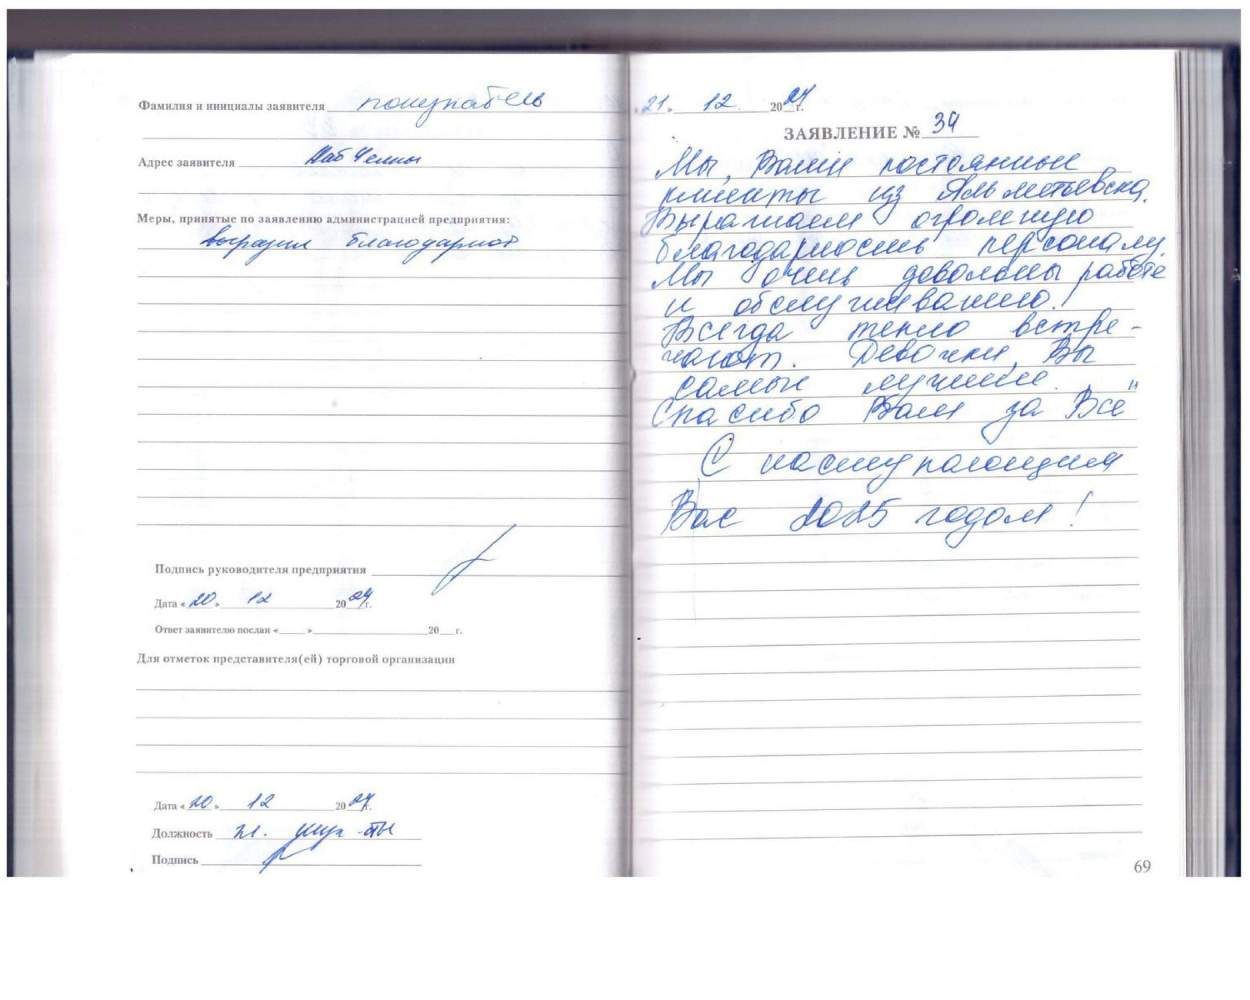 Фамилия и инициалы заявителя покупатель
Адрес заявителя Наб Челны
Меры, принятые по заявлению администрацией предприятия:
выразил благодарност
Подпись руководителя предприятия
Дата «20» 12 2024г.
Ответ заявителю послан «» 20 г.
Для отметок представителя(ей) торговой организации
Дата «20» 12 2024г.
Должность
Подпись
21. 12. 2024г.
ЗАЯВЛЕНИЕ № 34
Мы, Ваши постоянные
клиенты из Альметьевска.
Выражаем огромную
благодарность персоналу.
Мы очень довольны работе
и обслуживанию!
Всегда тепло встре-
чают. Девочки, Вы
самые лучшие.
Спасибо Вам за Все
С наступающим
Вас 2025 годом!
69